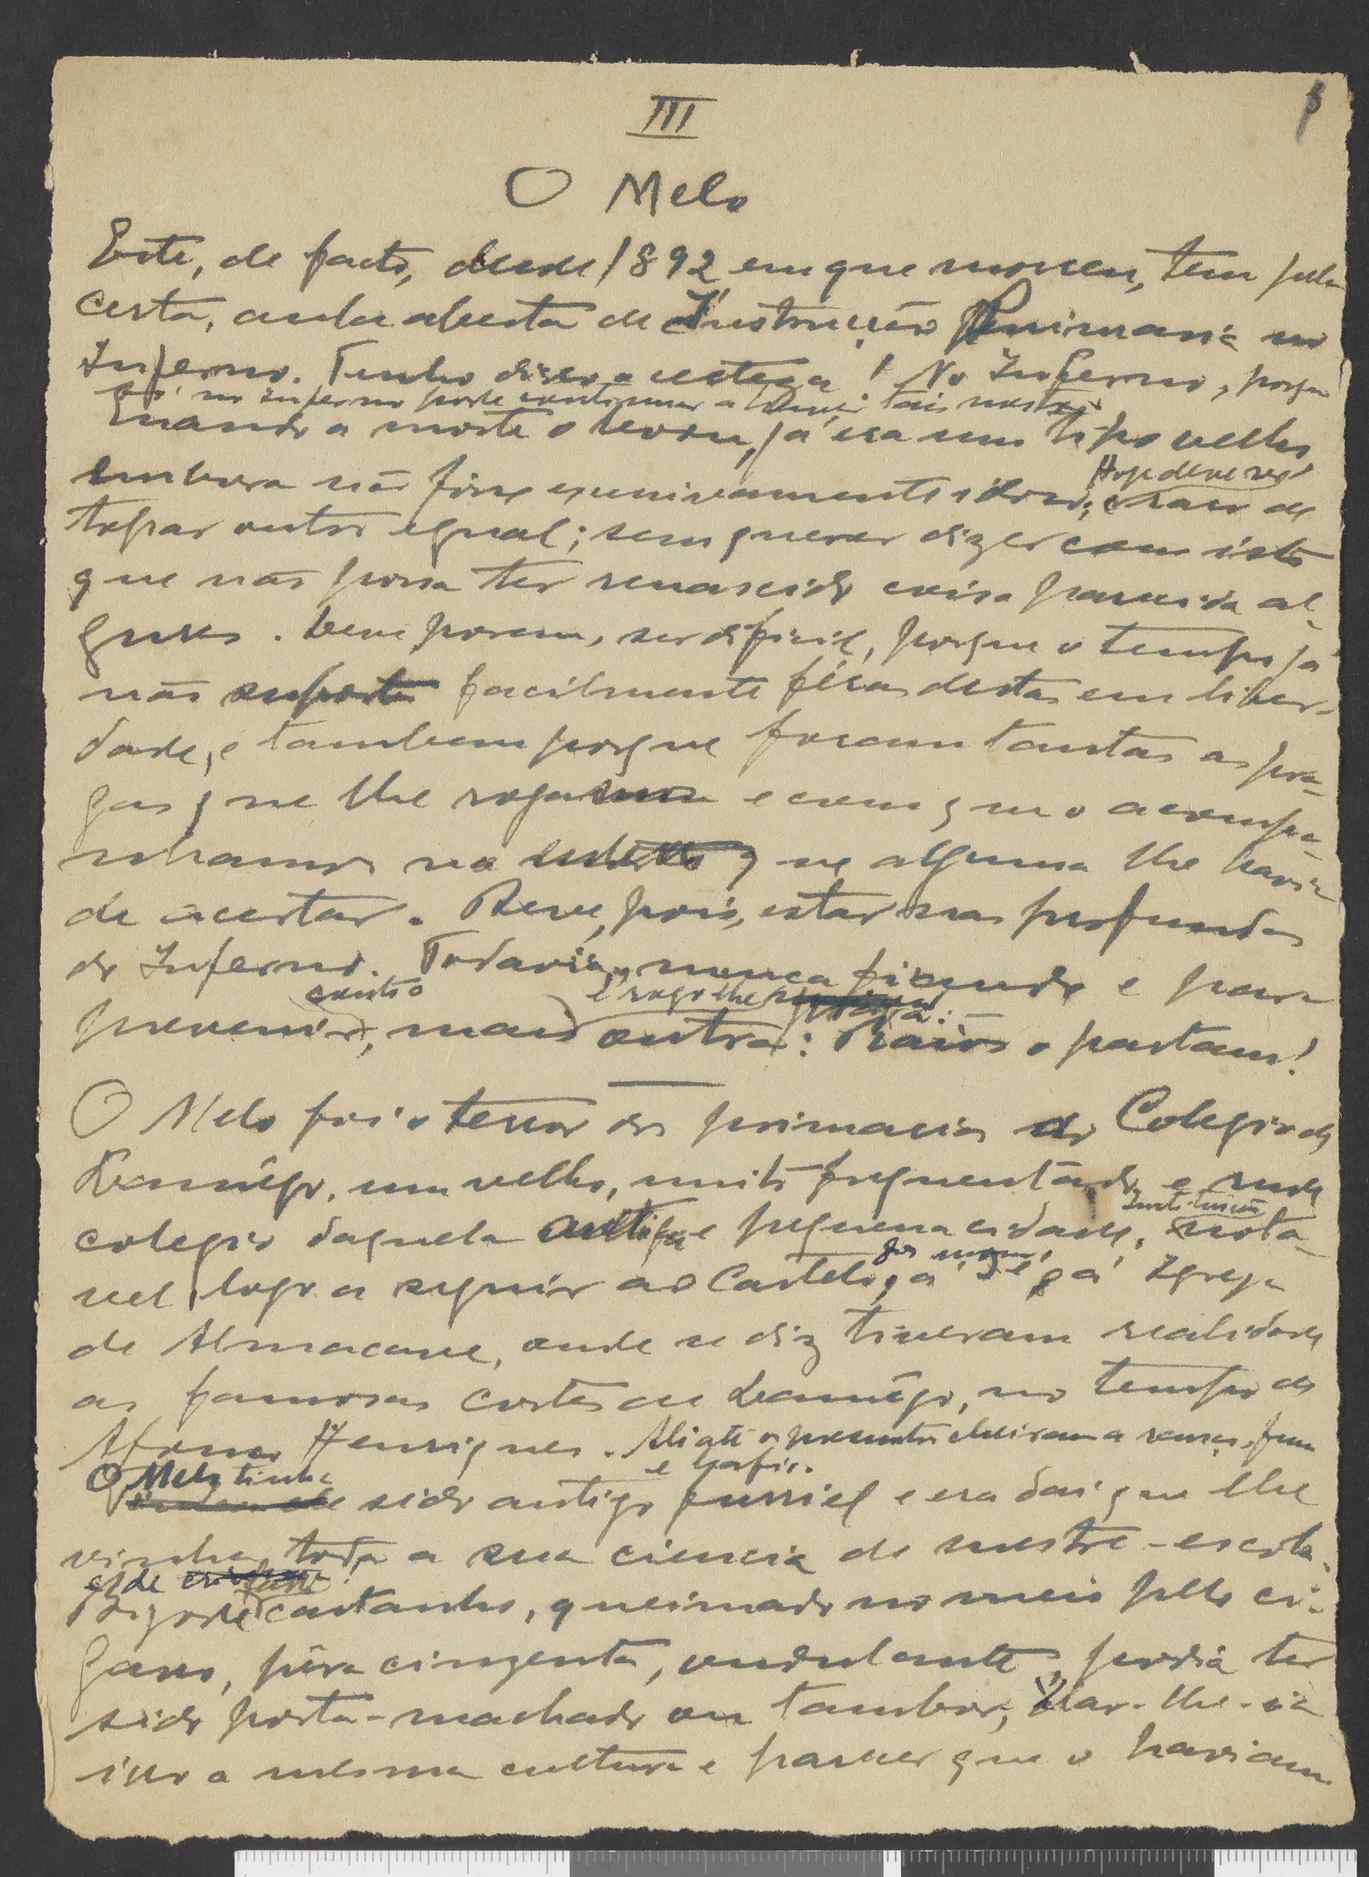 III
O Melo
Este, de facto, desde 1892 em que morreu, tem pela
certa, aula aberta de Instrucção Primaria no
Inferno. Tenho disso a certeza! No Inferno, porque
só no inferno pode continuar a haver tais mestres.
Quando a morte o levou, já era um tipo velho
embora não fosse excessivamente idoso; Hoje deve ser raro de
topar outro egual; sem querer dizer com isto
que não possa ter renascido coisa parecida al-
gures. Deve porem, ser dificil, porque o tempo já
não suporta facilmente féras destas em liber-
dade, e tambem porque foram tantas as pra-
gas que lhe rogamos e com que o acompa-
nhamos que alguma lhe havia
de acertar. Deve, pois, estar nas profundas
do Inferno. Todavia, nunca fiando e para
contra
prevenir, mais outra: Raios o partam!
O Melo foi o terror da primaria do Colegio de
Lamêgo, um velho, muito frequentado e rude
colegio daquela antiga e pequena cidade, Instituição nota-
vel logo a seguir ao Castelo, á Sé, e á Igreja
de Almacave, onde se diz tiveram realidade
as famosas cortes de Lamêgo, no tempo de
Afonso Henriques. Ali até os presuntos cheiram a ranço,
O Melo tinha sido antigo furriel e era daí que lhe
vinha toda a sua ciencia de mestre-escola.
Bigode castanho, queimado no meio pelo ci-
garro, pêra cinzenta, ondulante, podia ter
sido porta-machado ou tambor, dar-lhe-ia
isso a mesma cultura e parecer que o haviam